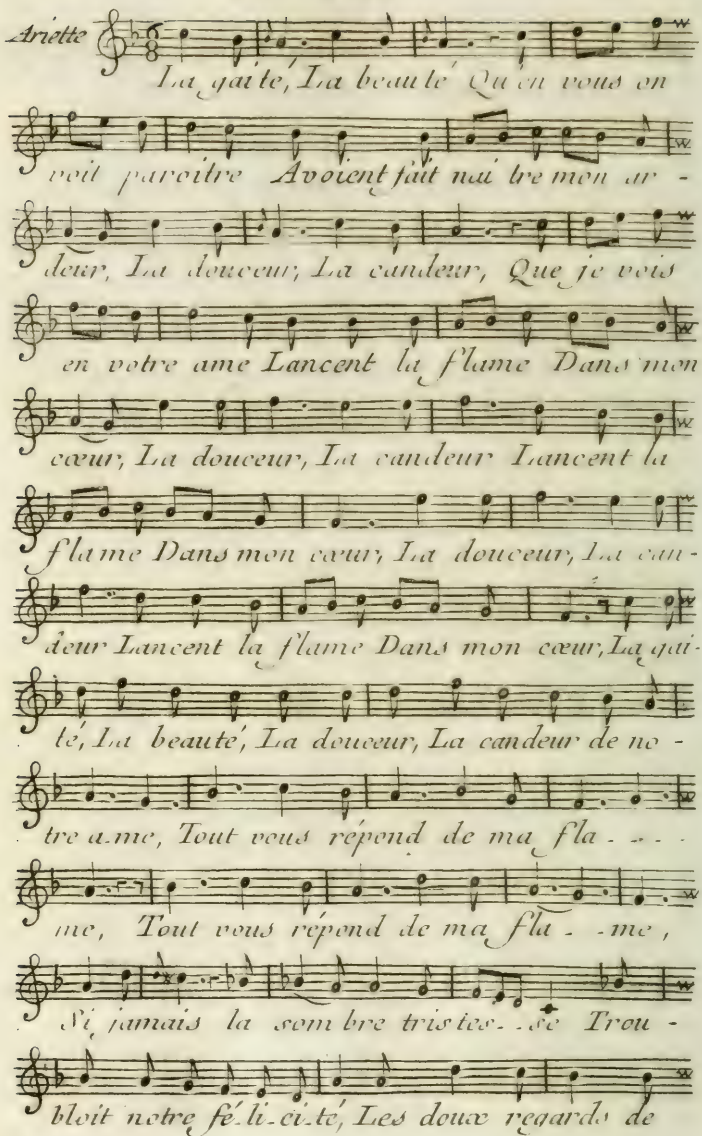 Ariette
La gaité, La beauté Qu'en vous on
voit paroitre Avoient fait nai tre mon ar -
deur, La douceur, La candeur, Que je vois
en votre ame Lancent la flame Dans mon
cœur, La douceur, La candeur Lancent la
flame Dans mon cœur, La douceur, La can-
deur Lancent la flame Dans mon cœur, La gai-
té, La beauté, La douceur, La candeur de no -
tre a-me, Tout vous répond de ma fla - - - -
me, Tout vous répond de ma fla - - me,
Si jamais la som bre tristes - - se Trou -
bloit notre fé-li-ci-té, Les doux regards de